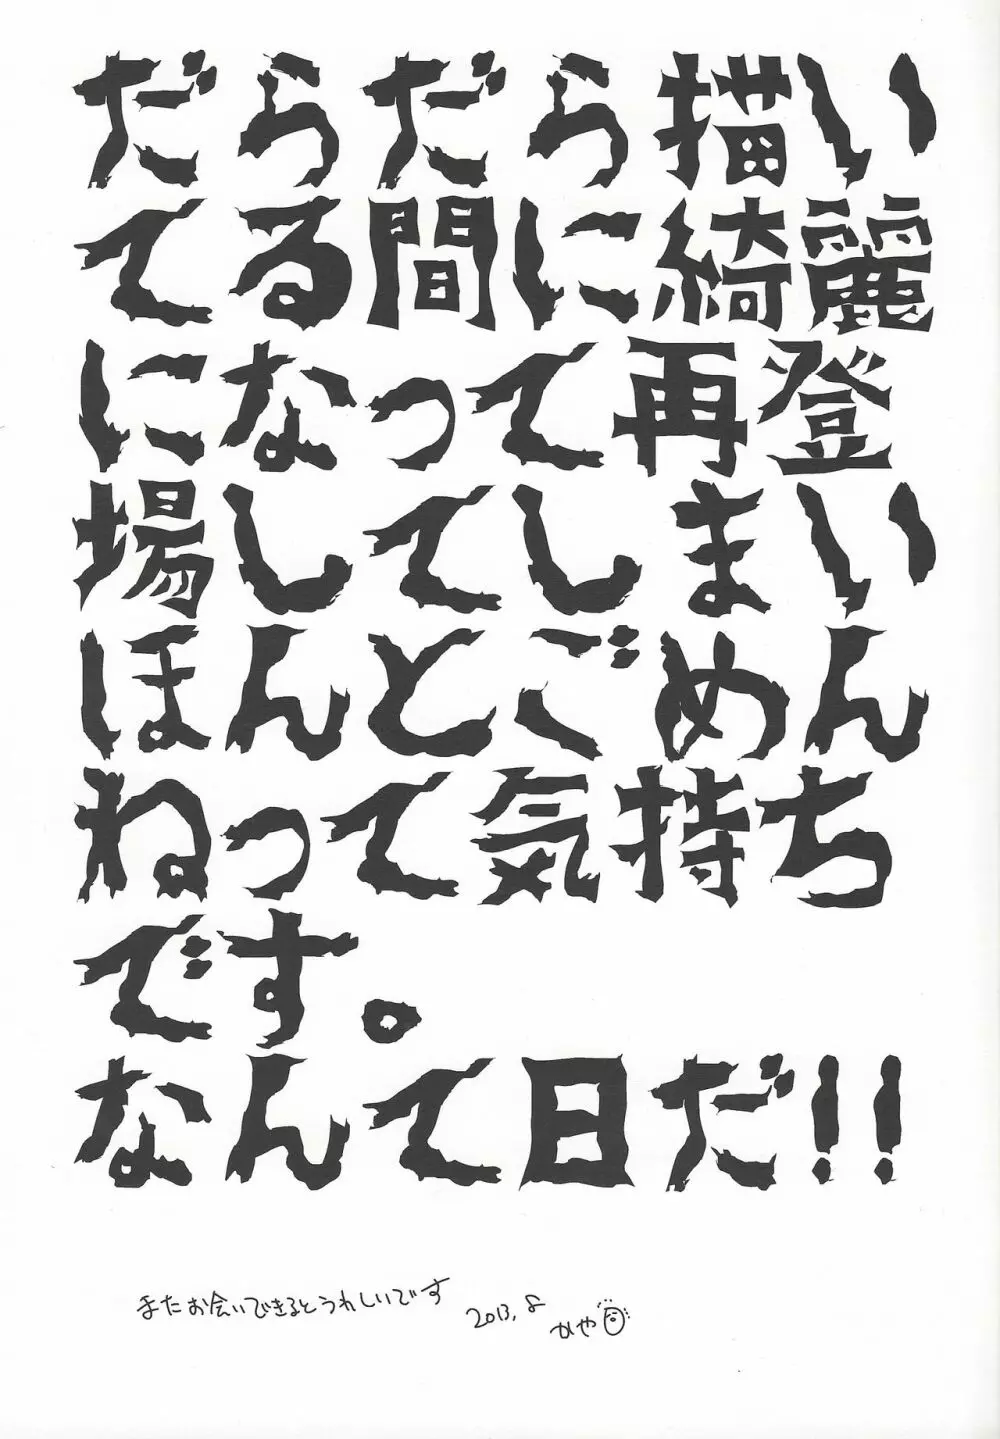 だらだら描い
てる間に綺麗
になって再登
場してしまい
ほんとごめん
ねって気持ち
です。
なんて日だ!!
またお会いできるとうれしいです
2013.8
かや